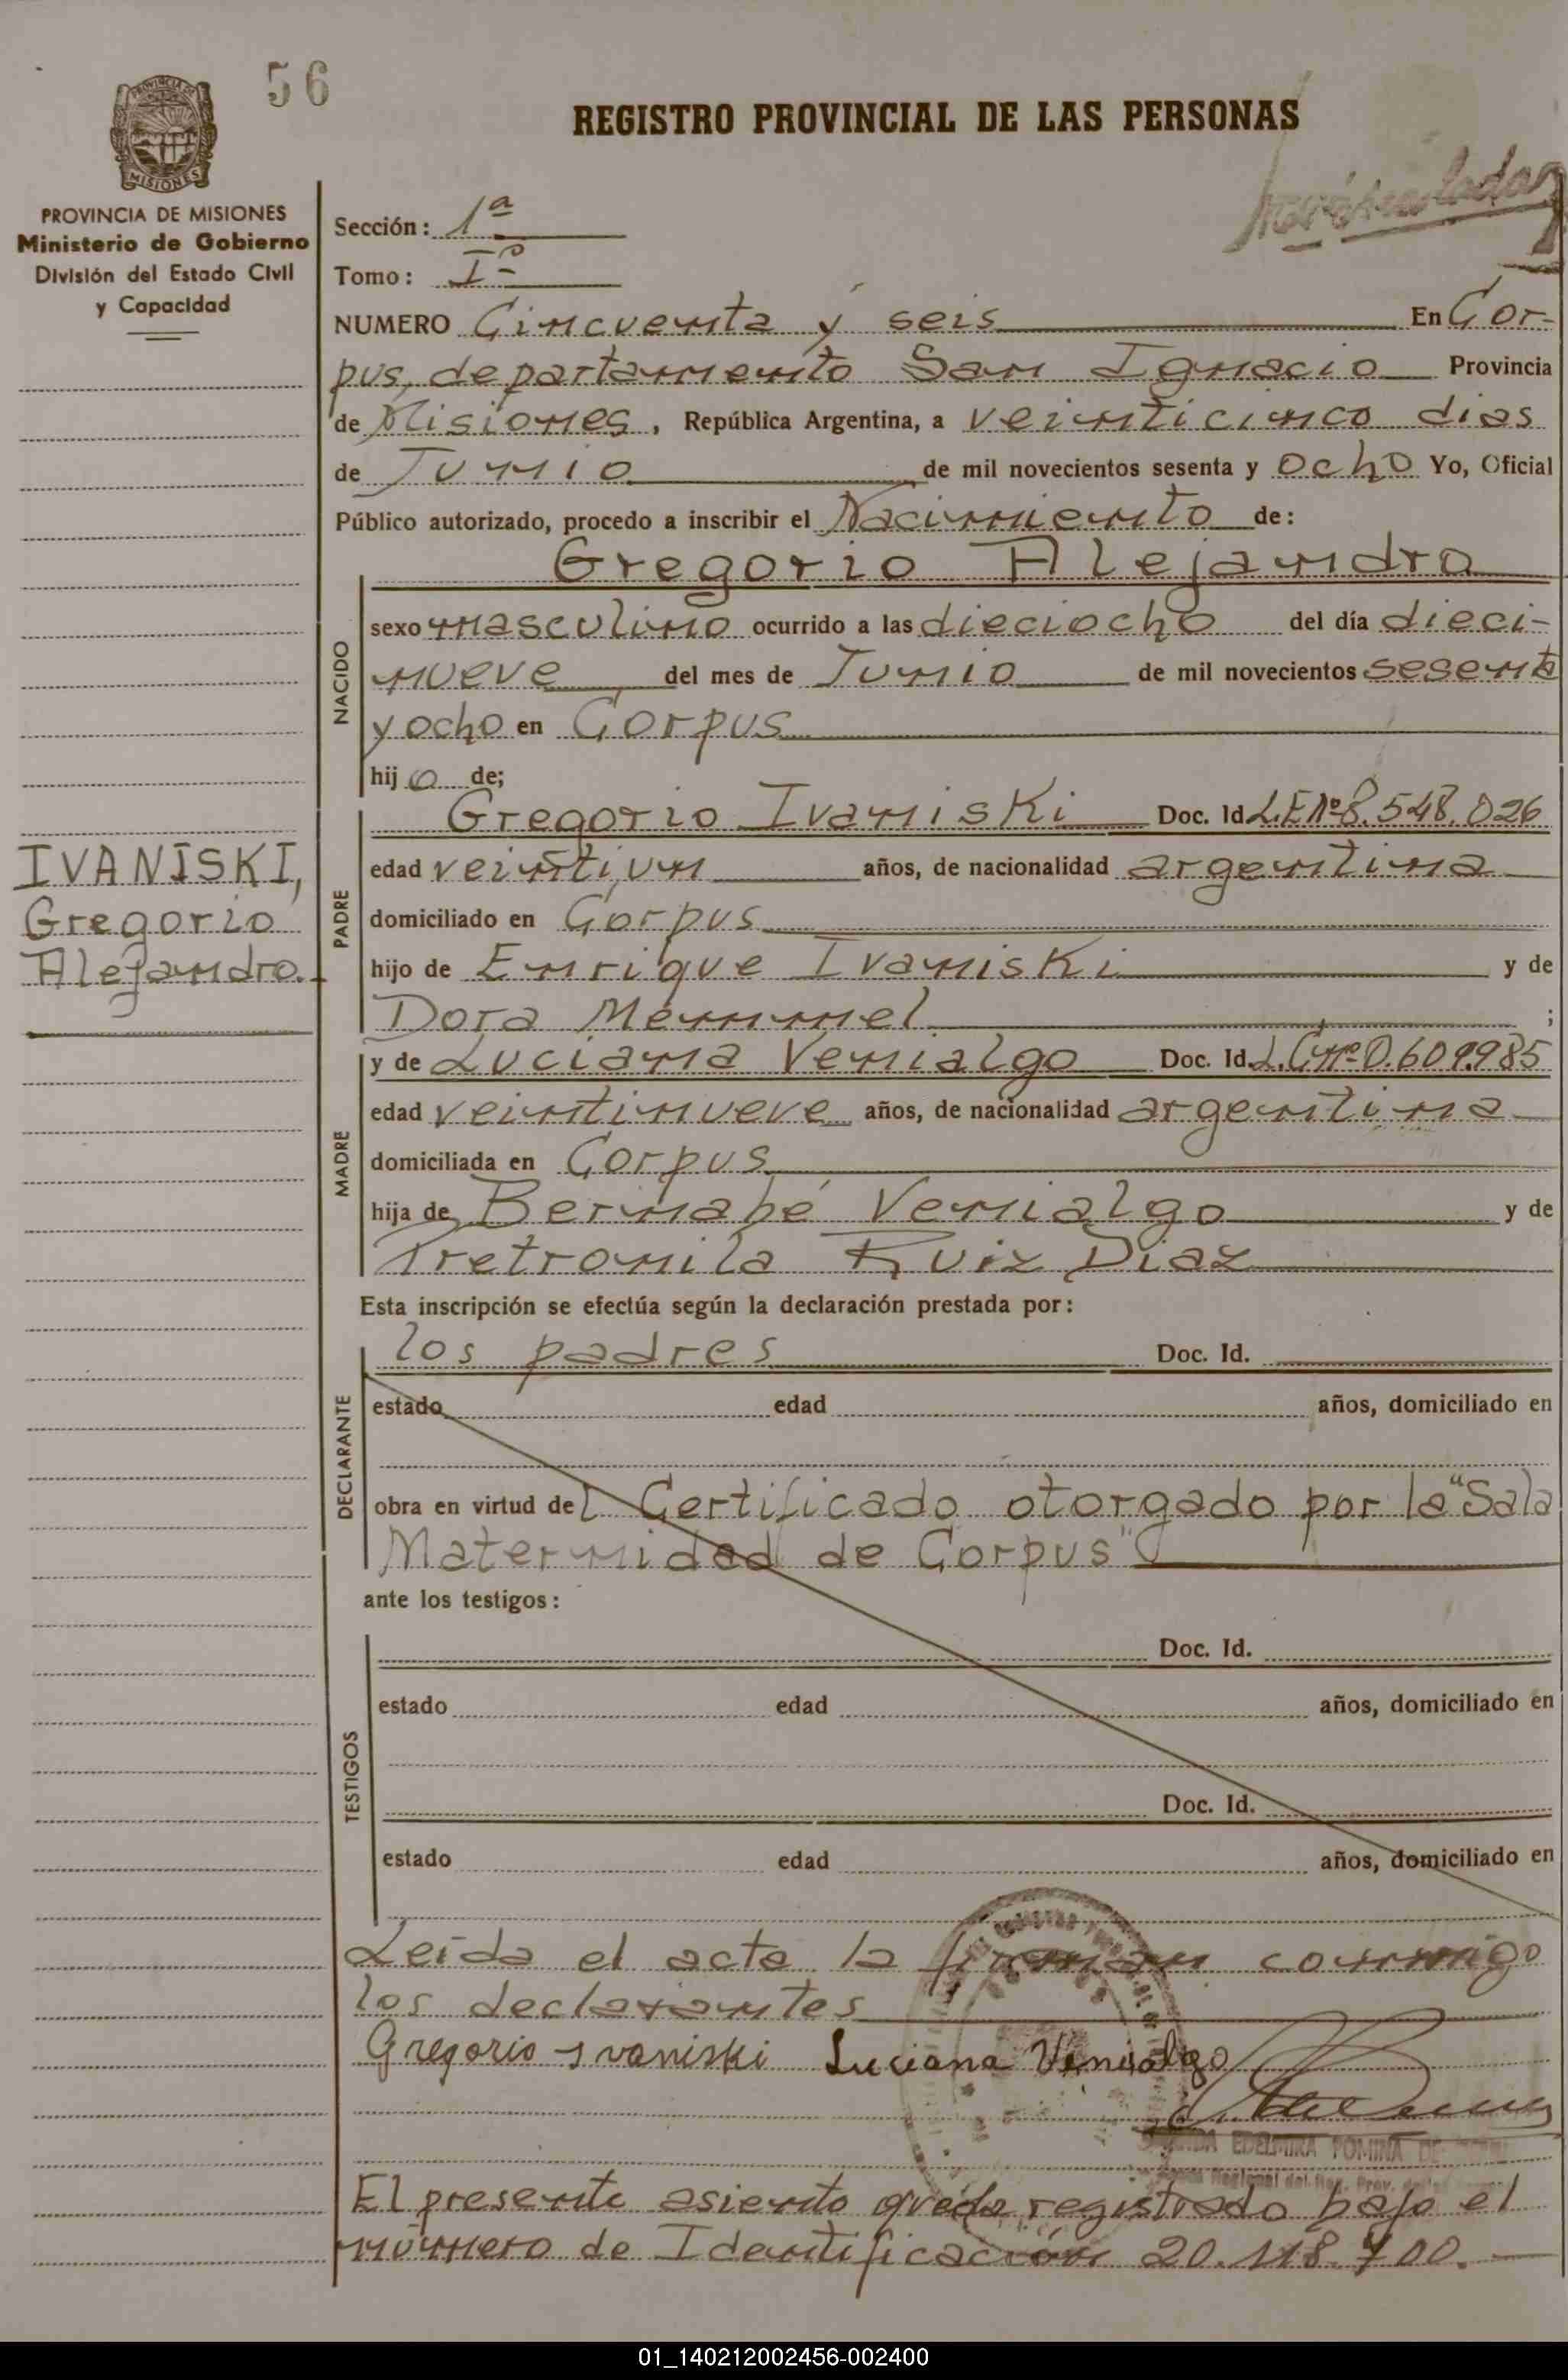 56
REGISTRO PROVINCIAL DE LAS PERSONAS
MISIONES
PROVINCIA DE MISIONES
Ministerio de Gobierno
División del Estado Civil
y Capacidad
Sección: 1ª
Tomo: Iº
NUMERO Cincuenta y seis En Cor-
pus, departamento San Ignacio Provincia
de Misiones, República Argentina, a veinticinco dias
de Junio de mil novecientos sesenta y ocho Yo, Oficial
Público autorizado, procedo a inscribir el Nacimiento de:
Gregorio Alejandro
NACIDO
sexo masculino ocurrido a las dieciocho del día dieci-
nueve del mes de Junio de mil novecientos sesenta
y ocho en Corpus
hijo de;
IVANISKI,
Gregorio
Alejandro.
PADRE
Gregorio Ivaniski Doc. Id L.E Nº 8.548.026
edad veintiun años, de nacionalidad argentina
domiciliado en Corpus
hijo de Enrique Ivaniski y de
Dora Memmel ;
MADRE
y de Luciana Venialgo Doc. Id. L.C nº 0.609.985
edad veintinueve años, de nacionalidad argentina
domiciliada en Corpus
hija de Bernabé Venialgo y de
Tretronila Ruiz Diaz
Esta inscripción se efectúa según la declaración prestada por:
DECLARANTE
los padres Doc. Id.
estado edad años, domiciliado en
obra en virtud del Certificado otorgado por la "Sala
Maternidad de Corpus"
ante los testigos:
TESTIGOS
Doc. Id.
estado edad años, domiciliado en
Doc. Id.
estado edad años, domiciliado en
Leída el acta la firman conmigo
los declarantes
Gregorio Ivaniski Luciana Venialgo
EDELMIRA ROMINA DE
El presente asiento queda registrado bajo el
número de Identificación 20.118.400.
01_140212002456-002400